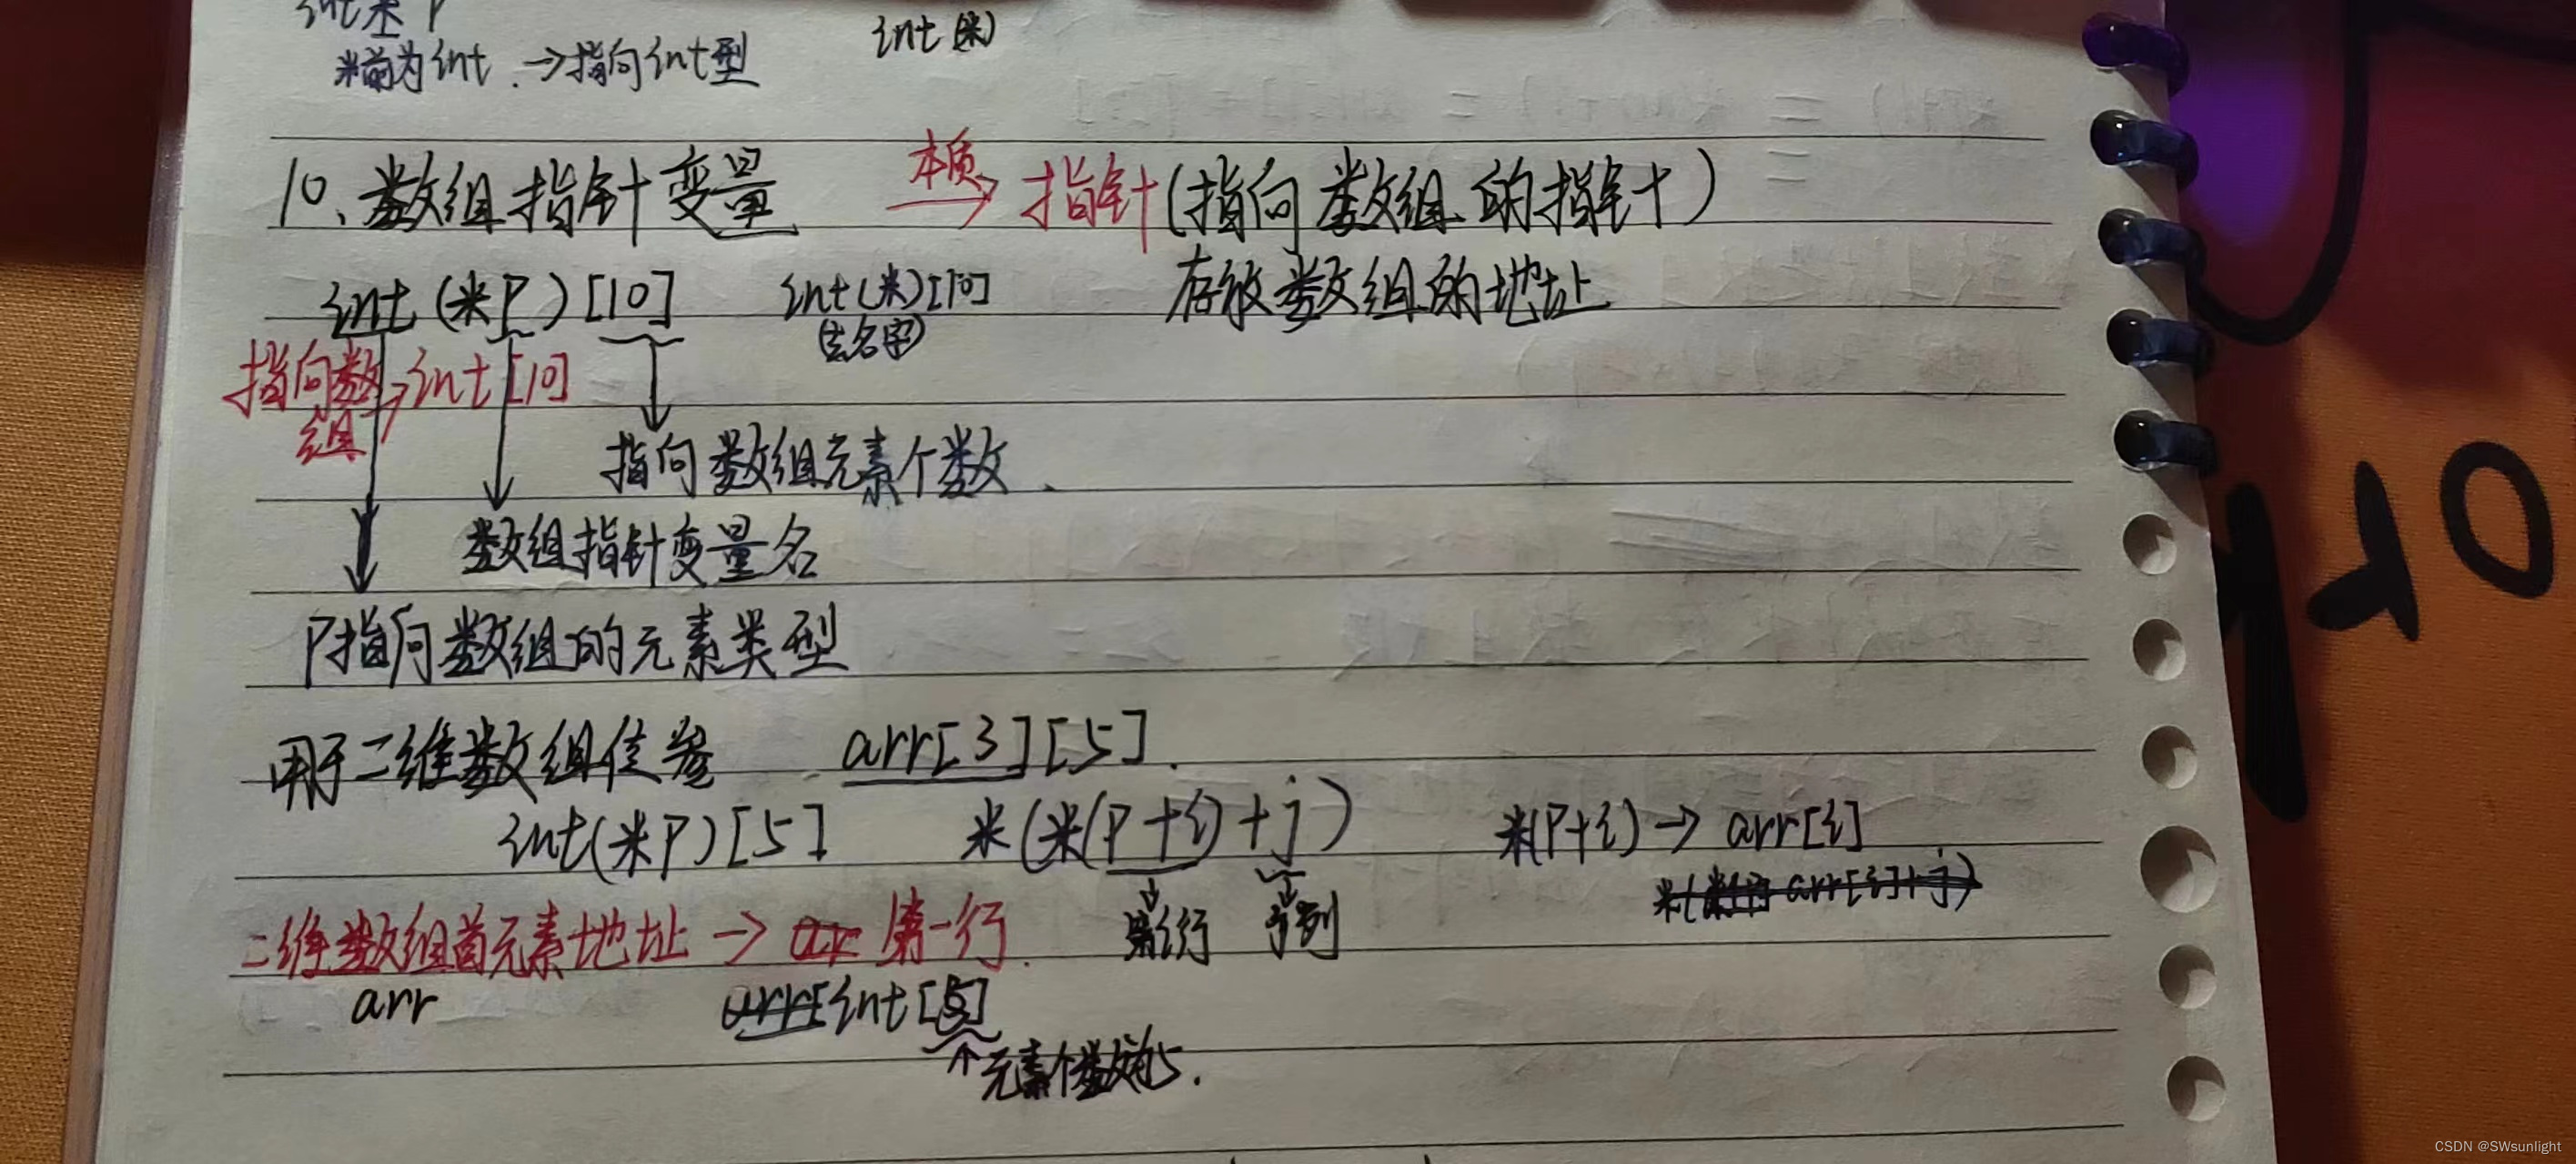 int * P
*前为int → 指向int型
int (*)
10、数组指针变量 本质→ 指针(指向数组的指针)
int (*P) [10] int(*)[10] 存放数组的地址
(去名字)
指向数组→int [10]
指向数组元素个数.
数组指针变量名
P指向数组的元素类型
用于二维数组传参 arr[3][5].
int(*P)[5] *(*(P+i)+j) *(P+i)→ arr[i]
第i行 j列
二维数组首元素地址 → 第一行.
arr int[5]
↑元素个数为5.
CSDN @SWsunlight